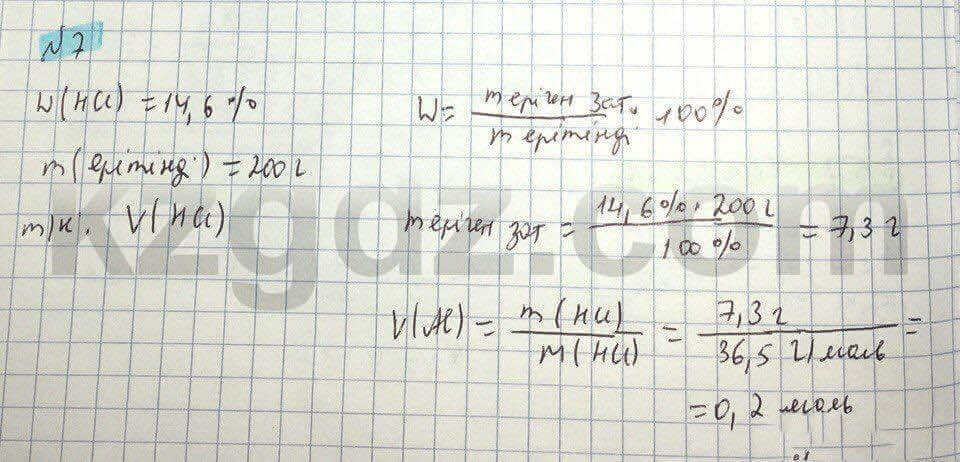 №7
W(HCl) = 14,6 %
m(ерітінді) = 200 г
т/к. V(HCl)
W = m еріген зат / m ерітінді · 100%
m еріген зат = 14,6% · 200 г / 100 % = 7,3 г
V(HCl) = m(HCl) / M(HCl) = 7,3 г / 36,5 г/моль =
= 0,2 моль
kzgdz.com